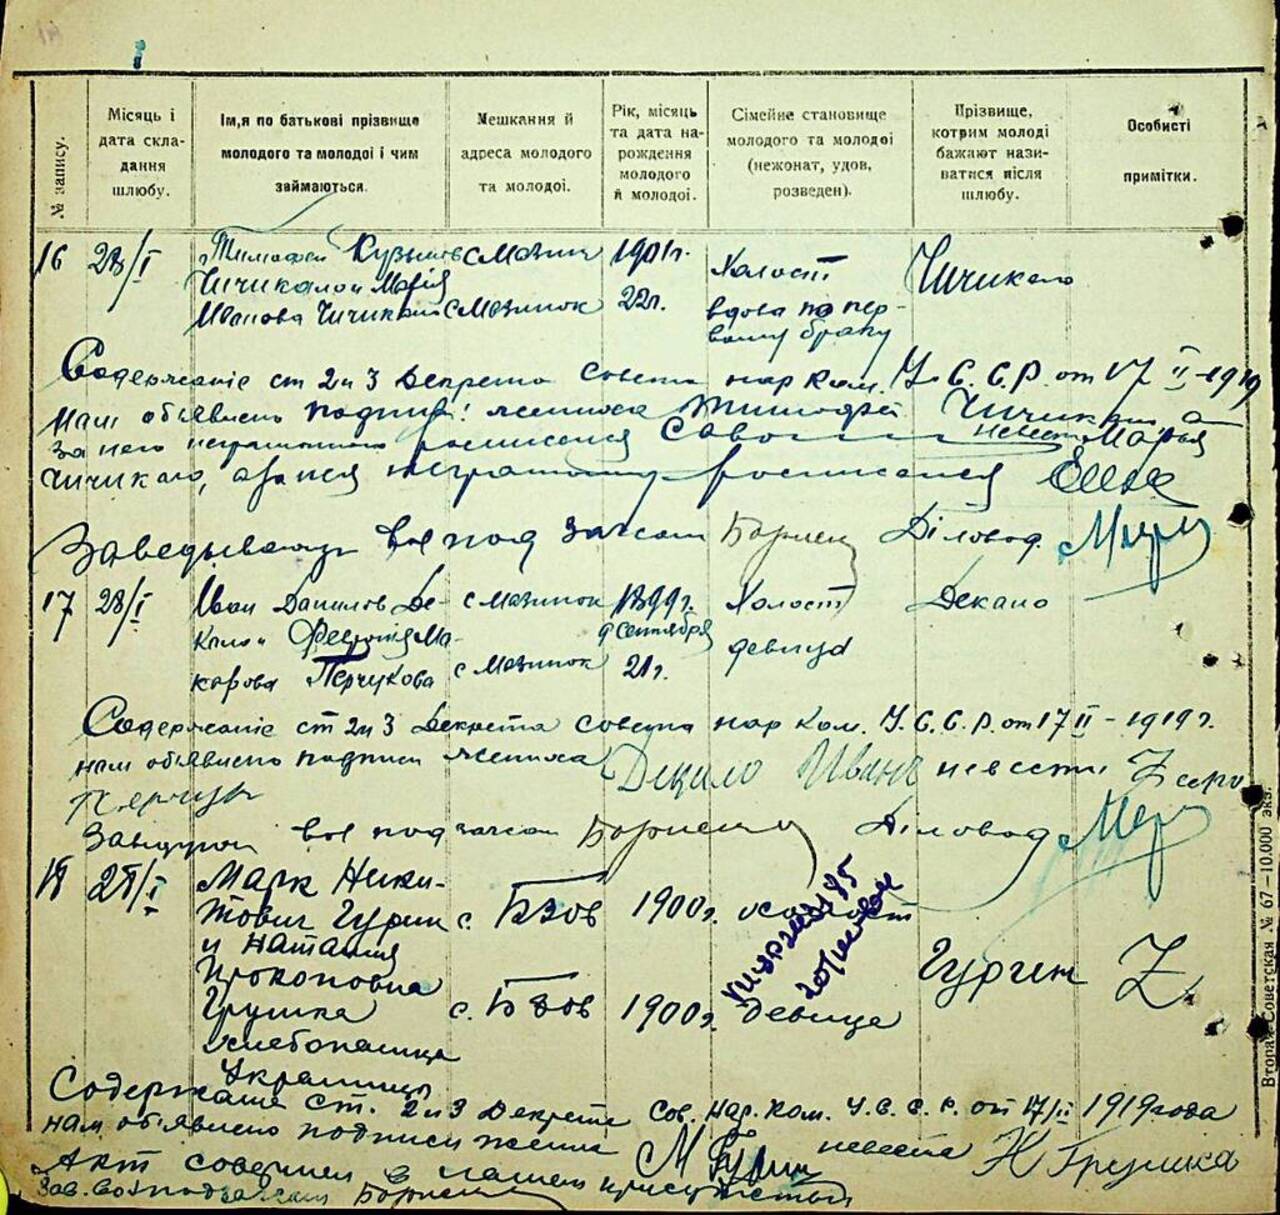 № запису.
Місяць і дата складання шлюбу.
Ім,я по батькові прізвище молодого та молодої і чим займаються.
Мешкання й адреса молодого та молодої.
Рік, місяць та дата народження молодого й молодої.
Сімейне становище молодого та молодої (нежонат, удов, розведен).
Прізвище, котрим молоді бажают називатися після шлюбу.
Особисті примітки.
16 28/I Тимофей Кузьмов с Мазинк 1901г. Холост Чичкало
Чичикало и Марія
Иванова Чичикало с Мазинок 22г. вдова по пер-
вому браку
Содержаніе ст 2 и 3 Декрета совета нар ком. У. С. С. Р. от 17 II - 1919
нам об'явлено подписи: жениха Тимофей Чичикало а
за него неграмотного росписался невеста Марья
Чичикало, а за нея неграмотную росписался
Заведывающ вол под загсом Борисен Діловод.
17 28/I Иван Данилов Де- с Мазинок 1899г. Холост Декало
кало и Федотія Ма- 9 сентября
карова Перчукова с Мазинок 21г. девица
Содержаніе ст 2 и 3 Декрета совета нар ком. У. С. С. Р. от 17 II - 1919 г.
нам об'явлено подписи жениха Декало Иван невести
Завидующ вол под загсом Борисен Діловод
18 28/I Марк Ники-
тович Гурин с. Бзов 1900г. холост
и Наталия Гурин
Прокоповна
Грушка с. Бзов 1900г. девица
хлебопашцы
Украинцы
Содержание ст. 2 и 3 Декрета Сов. Нар. Ком. У. С. С. Р. от 17/II 1919 года
нам об'явлено подписи жених М Гурин невеста Н Грушка
Акт совершен в нашем присутствии
Зав. вол подзагсом Борисен
Вторая Советская № 67 — 10.000 экз.